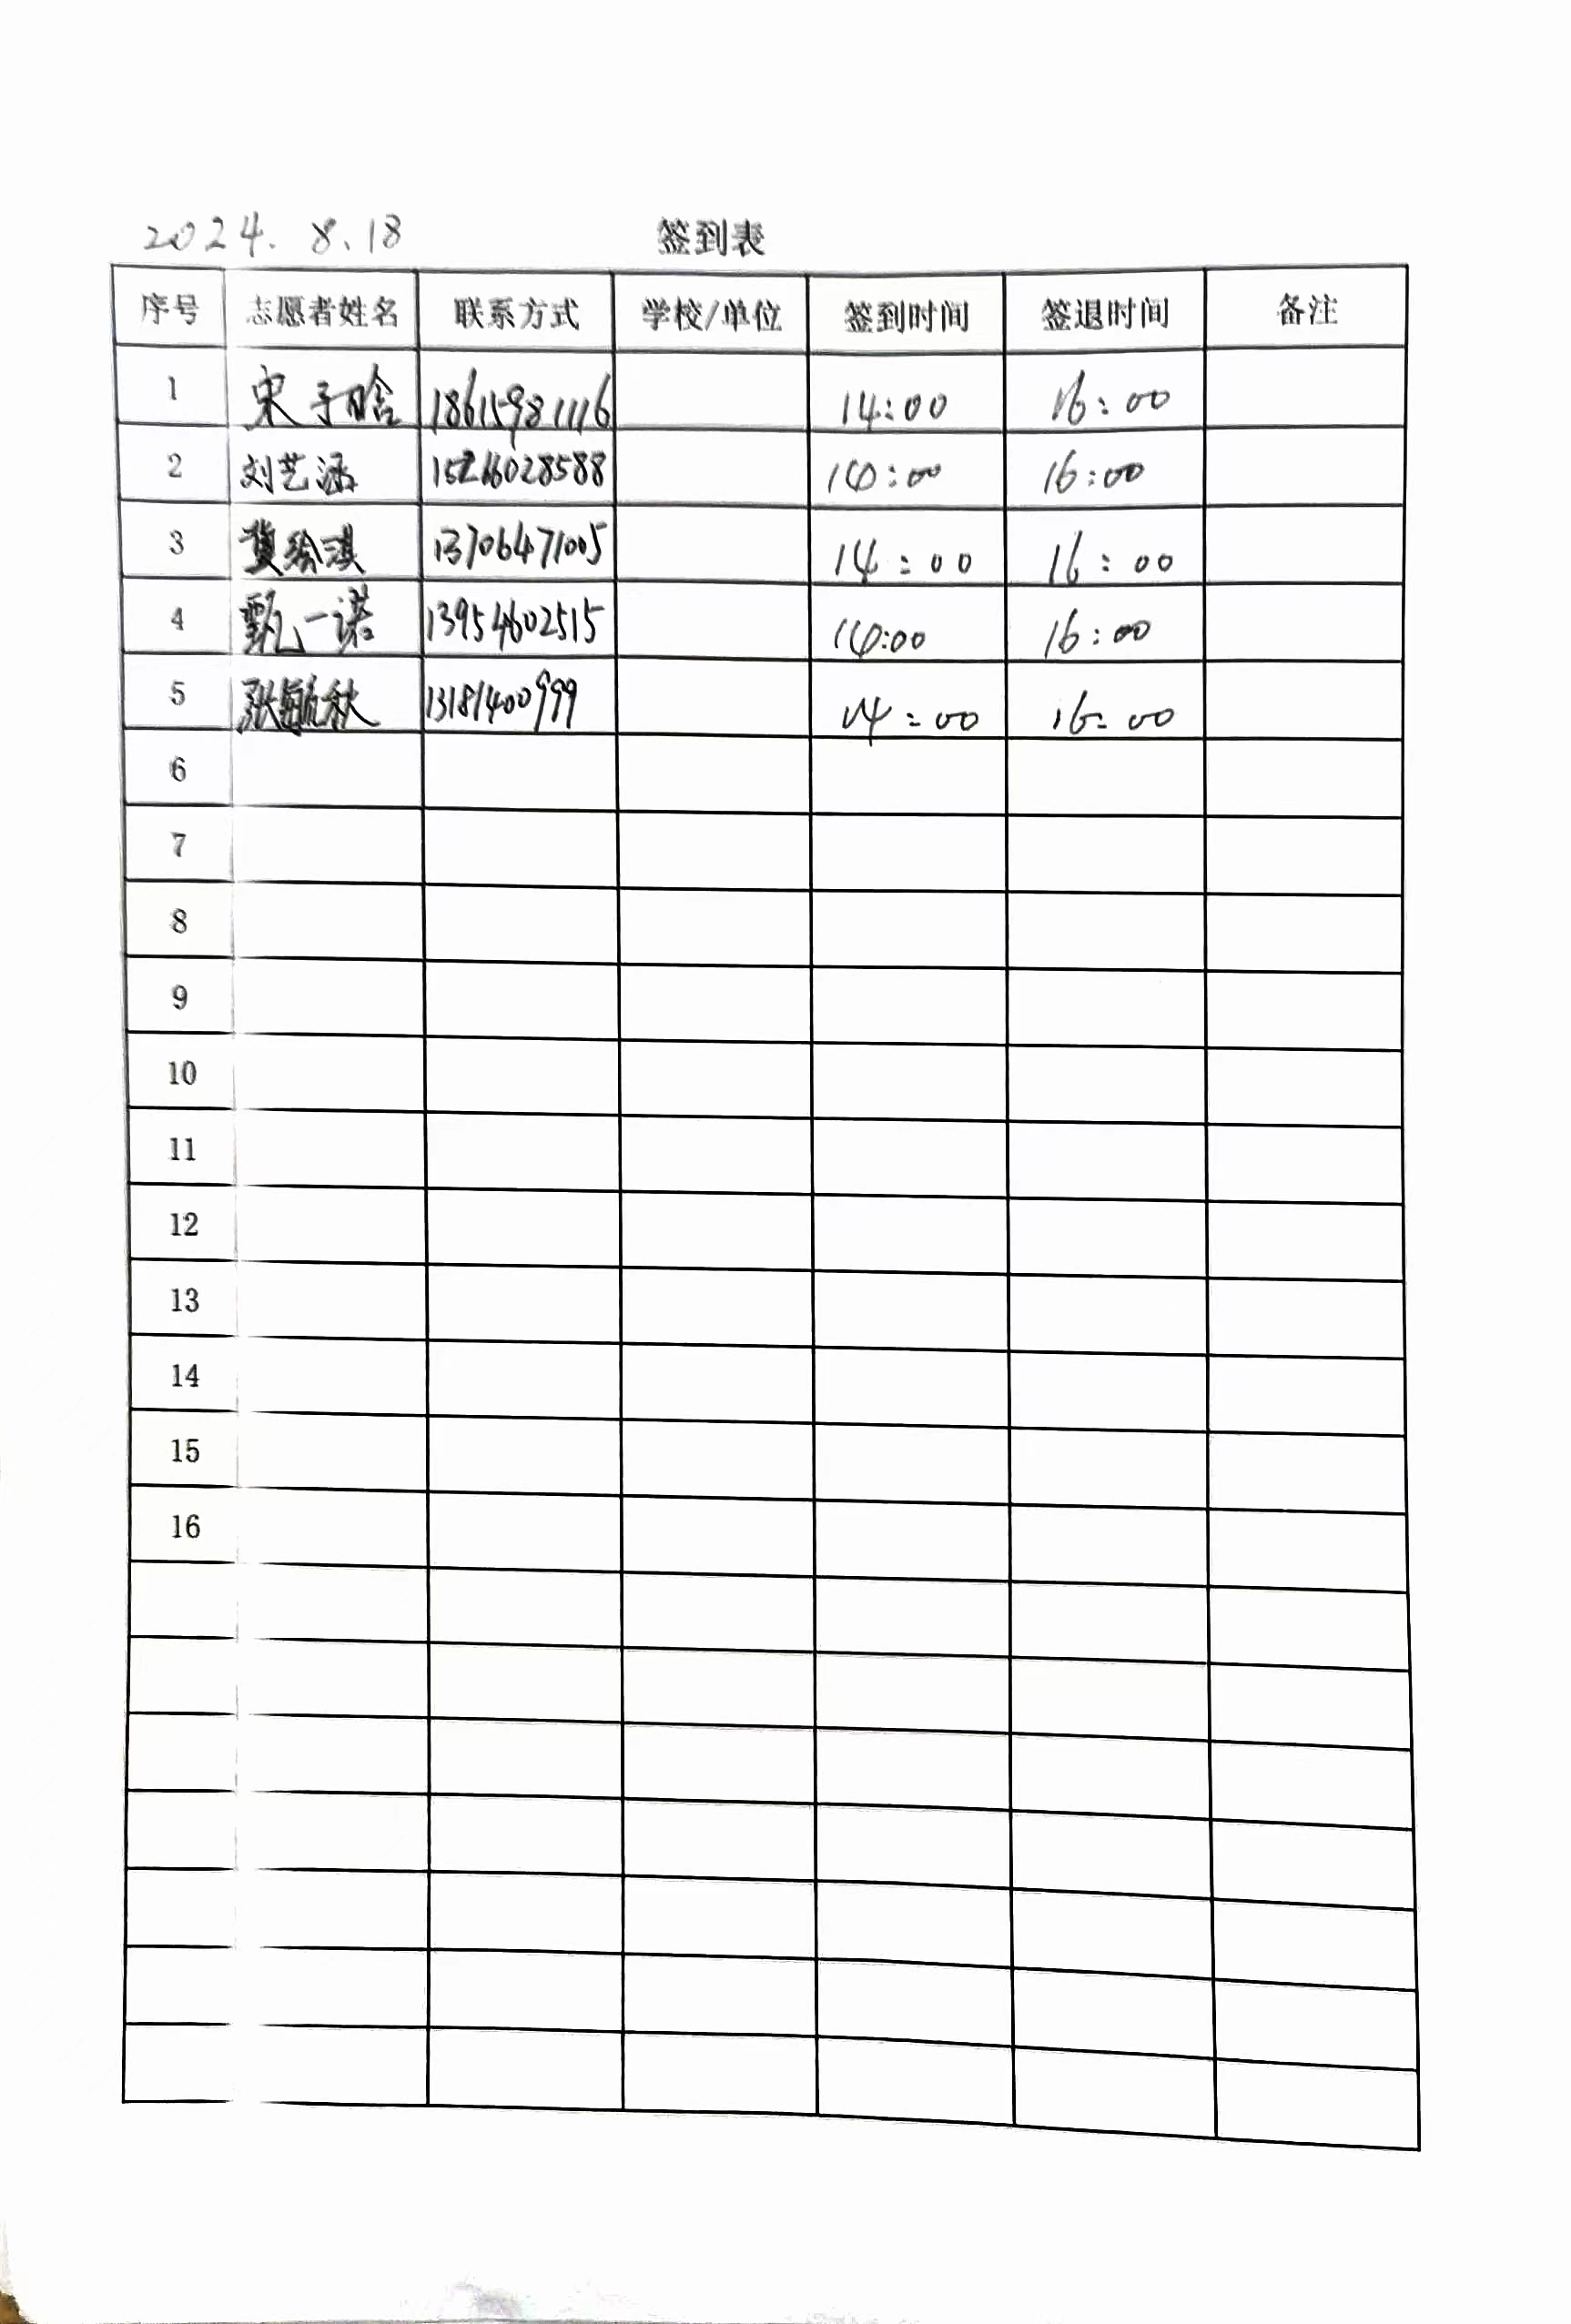 2024. 8.18 签到表
序号 志愿者姓名 联系方式 学校/单位 签到时间 签退时间 备注
1 宋子晗 18615981116 14:00 16:00
2 刘艺涵 028588 14:00 16:00
3 13706471005 14:00 16:00
4 甄一诺 13954602515 14:00 16:00
5 张毓秋 13181400999 14:00 16:00
6
7
8
9
10
11
12
13
14
15
16